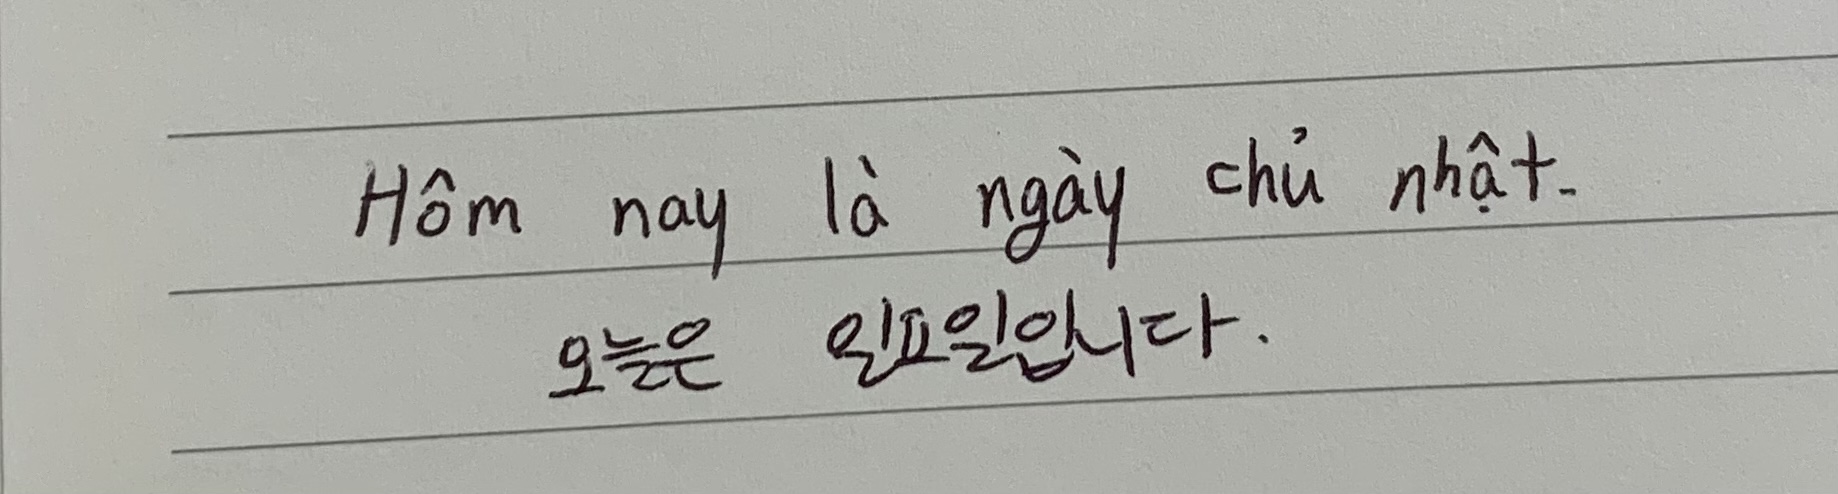 Hôm nay là ngày chủ nhật.
오늘은 일요일입니다.